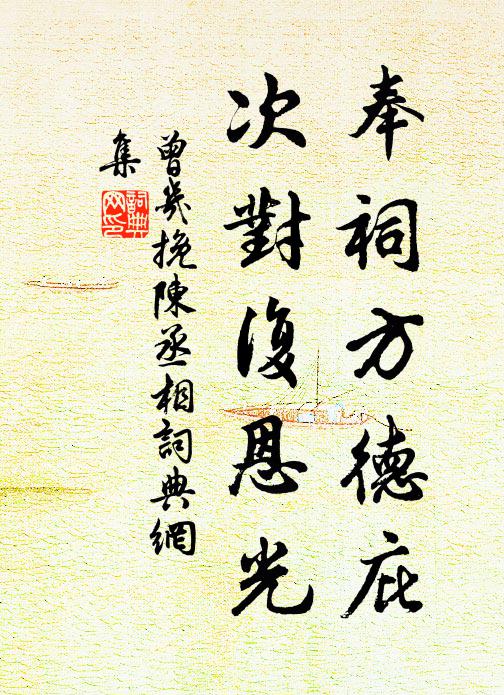 奉祠方德庇
次對復恩光
曾幾挽陳丞相詞典網
集
詞典網印